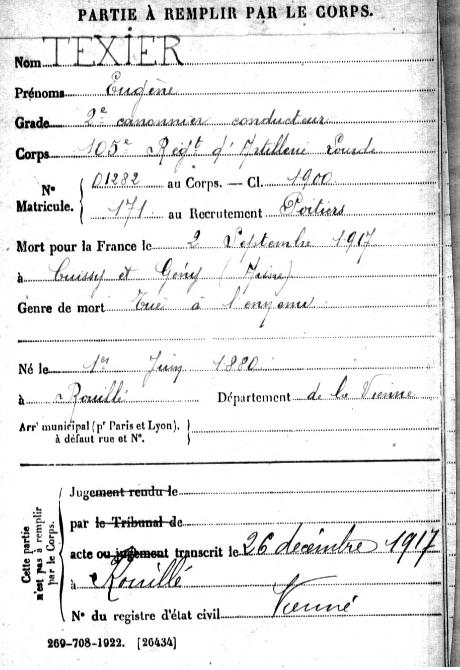 PARTIE À REMPLIR PAR LE CORPS.
Nom TEXIER
Prénoms Eugène
Grade 2e canonnier conducteur
Corps 105e Régt d'Artillerie Lourde
Nos Matricule. { 01282 au Corps. — Cl. 1900
171 au Recrutement Poitiers
Mort pour la France le 2 Septembre 1917
à Cuissy et Gény (Aisne)
Genre de mort Tué à l'ennemi
Né le 1er Juin 1880
à Rouillé Département de la Vienne
Arrt municipal (pr Paris et Lyon), à défaut rue et No. {
Cette partie n'est pas à remplir par le Corps. { Jugement rendu le
par le Tribunal de
acte ou jugement transcrit le 26 décembre 1917
à Rouillé
No du registre d'état civil Vienne
269-708-1922. [26434]